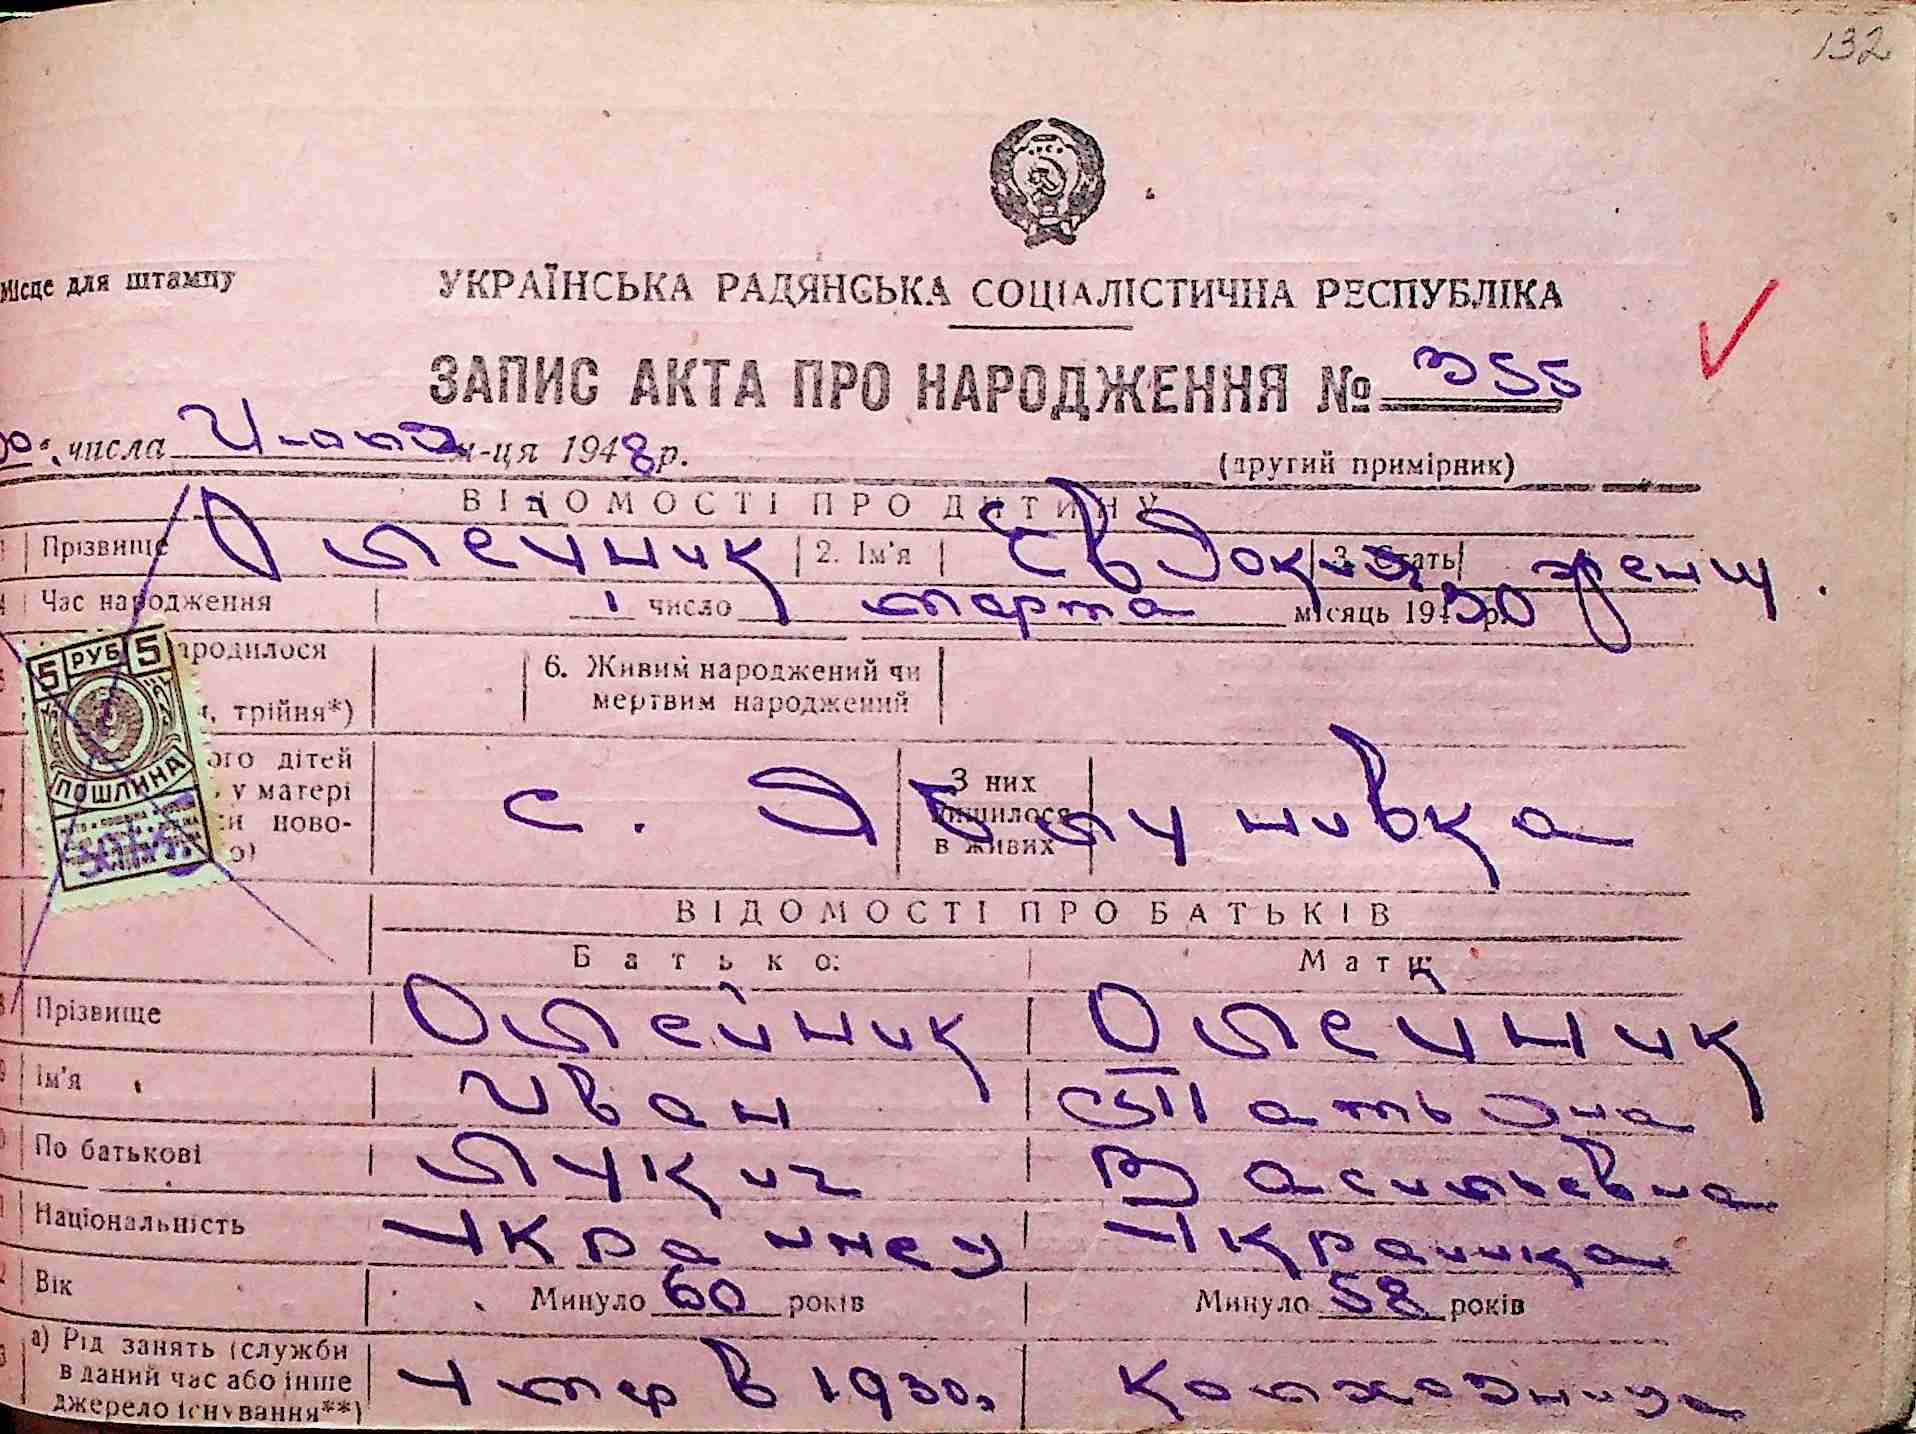 132
Місце для штампу
УКРАЇНСЬКА РАДЯНСЬКА СОЦІАЛІСТИЧНА РЕСПУБЛІКА
ЗАПИС АКТА ПРО НАРОДЖЕННЯ № 355
числа Июля м-ця 1948 р.
(другий примірник)
ВІДОМОСТІ ПРО ДИТИНУ
Прізвище Олейник 2. Ім'я Евдокия 3. Стать женщ.
Час народження 1 число марта місяць 1930 р.
5 РУБ 5
ПОШЛИНА
народилося
, трійня*)
6. Живим народжений чи
мертвим народжений
дітей
у матері
ново-
З них
лишилося
в живих
с. Яблунивка
ВІДОМОСТІ ПРО БАТЬКІВ
Батько: Мати:
Прізвище Олейник Олейник
Ім'я Иван Татьяна
По батькові Лукич Васильевна
Національність Украинец Украинка
Вік Минуло 60 років Минуло 58 років
а) Рід занять (служби
в даний час або інше
джерело існування**)
умер в 1930, колхозница